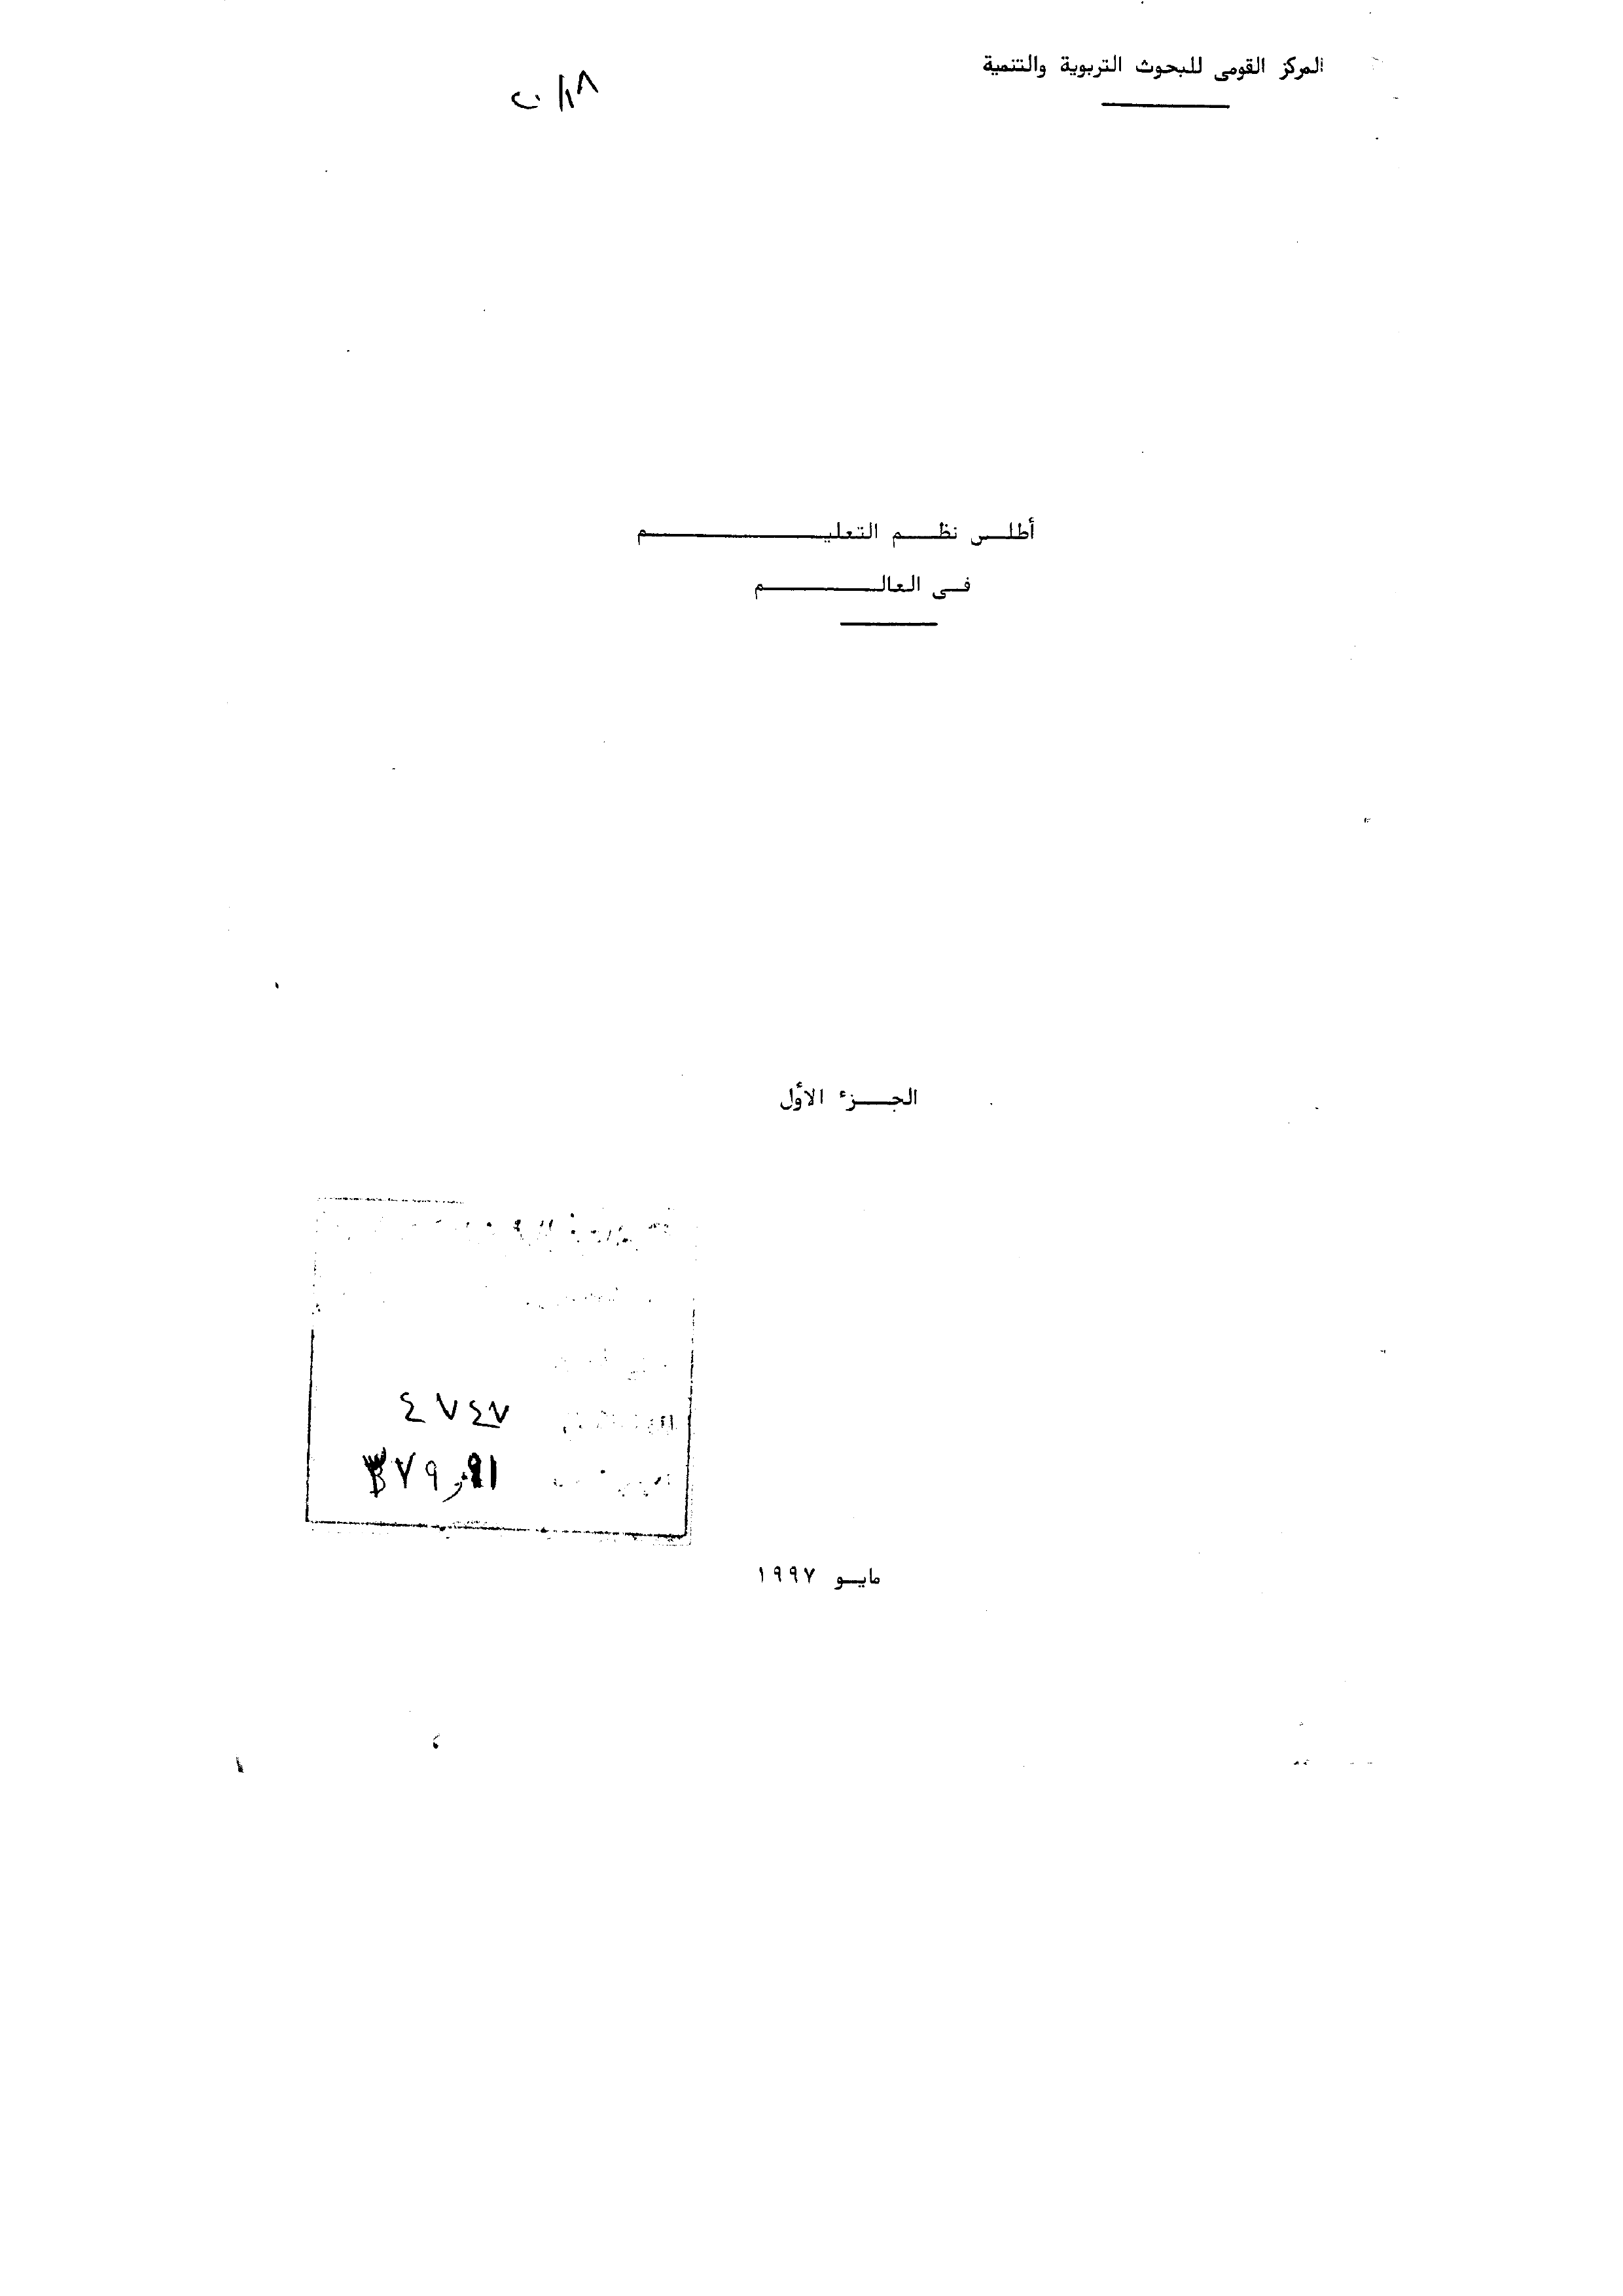 المركز القومى للبحوث التربوية والتنمية
أطلس نظم التعليم
فى العالم
الجزء الأول
٤٧٤٧
مايو ١٩٩٧